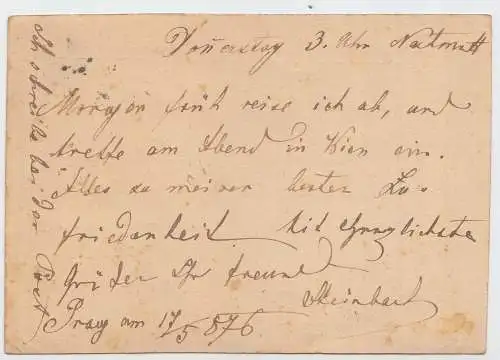 Donnerstag 3. Uhr Nachmitt
Morgen früh reise ich ab, und
treffe am Abend in Wien ein.
Alles zu meiner besten Zu-
friedenheit Mit herzlichsten
Grüßen Ihr Freund
Steinhart
Prag am 17/5 876
Ich schreibe bei der Post